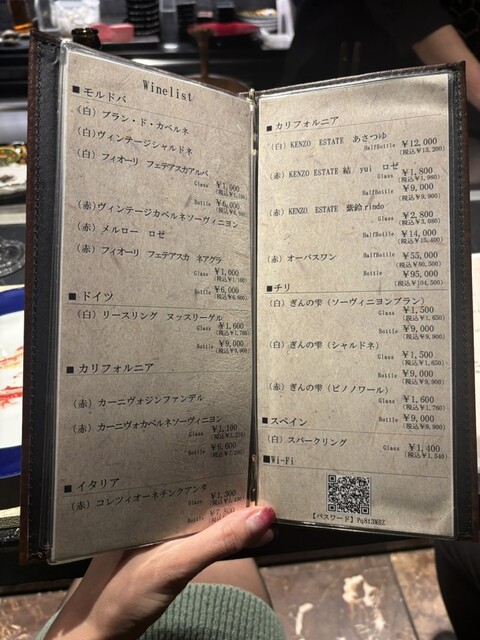 Winelist
■モルドバ
(白) ブラン・ド・カベルネ
(白)ヴィンテージシャルドネ
(白) フィオーリ フェテアスカアルバ
Glass ¥1,000
(税込¥1,100)
Bottle ¥6,000
(税込¥6,600)
(赤)ヴィンテージカベルネソーヴィニヨン
(赤) メルロー ロゼ
(赤) フィオーリ フェテアスカ ネアグラ
Glass ¥1,000
(税込¥1,100)
Bottle ¥6,000
(税込¥6,600)
■ドイツ
(白) リースリング ヌッスリーゲル
Glass ¥1,600
(税込¥1,760)
Bottle ¥9,000
(税込¥9,900)
■カリフォルニア
(赤) カーニヴォジンファンデル
(赤) カーニヴォカベルネソーヴィニヨン
Glass ¥1,100
(税込¥1,210)
Bottle ¥6,600
(税込¥7,260)
■イタリア
(赤) コレツィオーネチンクアンタ
Glass ¥1,300
(税込¥1,430)
Bottle
■カリフォルニア
(白) KENZO ESTATE あさつゆ
HalfBottle ¥12,000
(税込¥13,200)
(赤) KENZO ESTATE 結 yui ロゼ
Glass ¥1,800
(税込¥1,980)
HalfBottle ¥9,000
(税込¥9,900)
(赤) KENZO ESTATE 紫鈴 rindo
Glass ¥2,800
(税込¥3,080)
HalfBottle ¥14,000
(税込¥15,400)
(赤) オーパスワン
HalfBottle ¥55,000
(税込¥60,500)
Bottle ¥95,000
(税込¥104,500)
■チリ
(白) ぎんの雫 (ソーヴィニヨンブラン)
Glass ¥1,500
(税込¥1,650)
Bottle ¥9,000
(税込¥9,900)
(白) ぎんの雫 (シャルドネ)
Glass ¥1,500
(税込¥1,650)
Bottle ¥9,000
(税込¥9,900)
(赤) ぎんの雫 (ピノノワール)
Glass ¥1,600
(税込¥1,760)
Bottle ¥9,000
(税込¥9,900)
■スペイン
(白) スパークリング
Glass ¥1,400
(税込¥1,540)
■Wi-Fi
【パスワード】Pq8t3MBZ